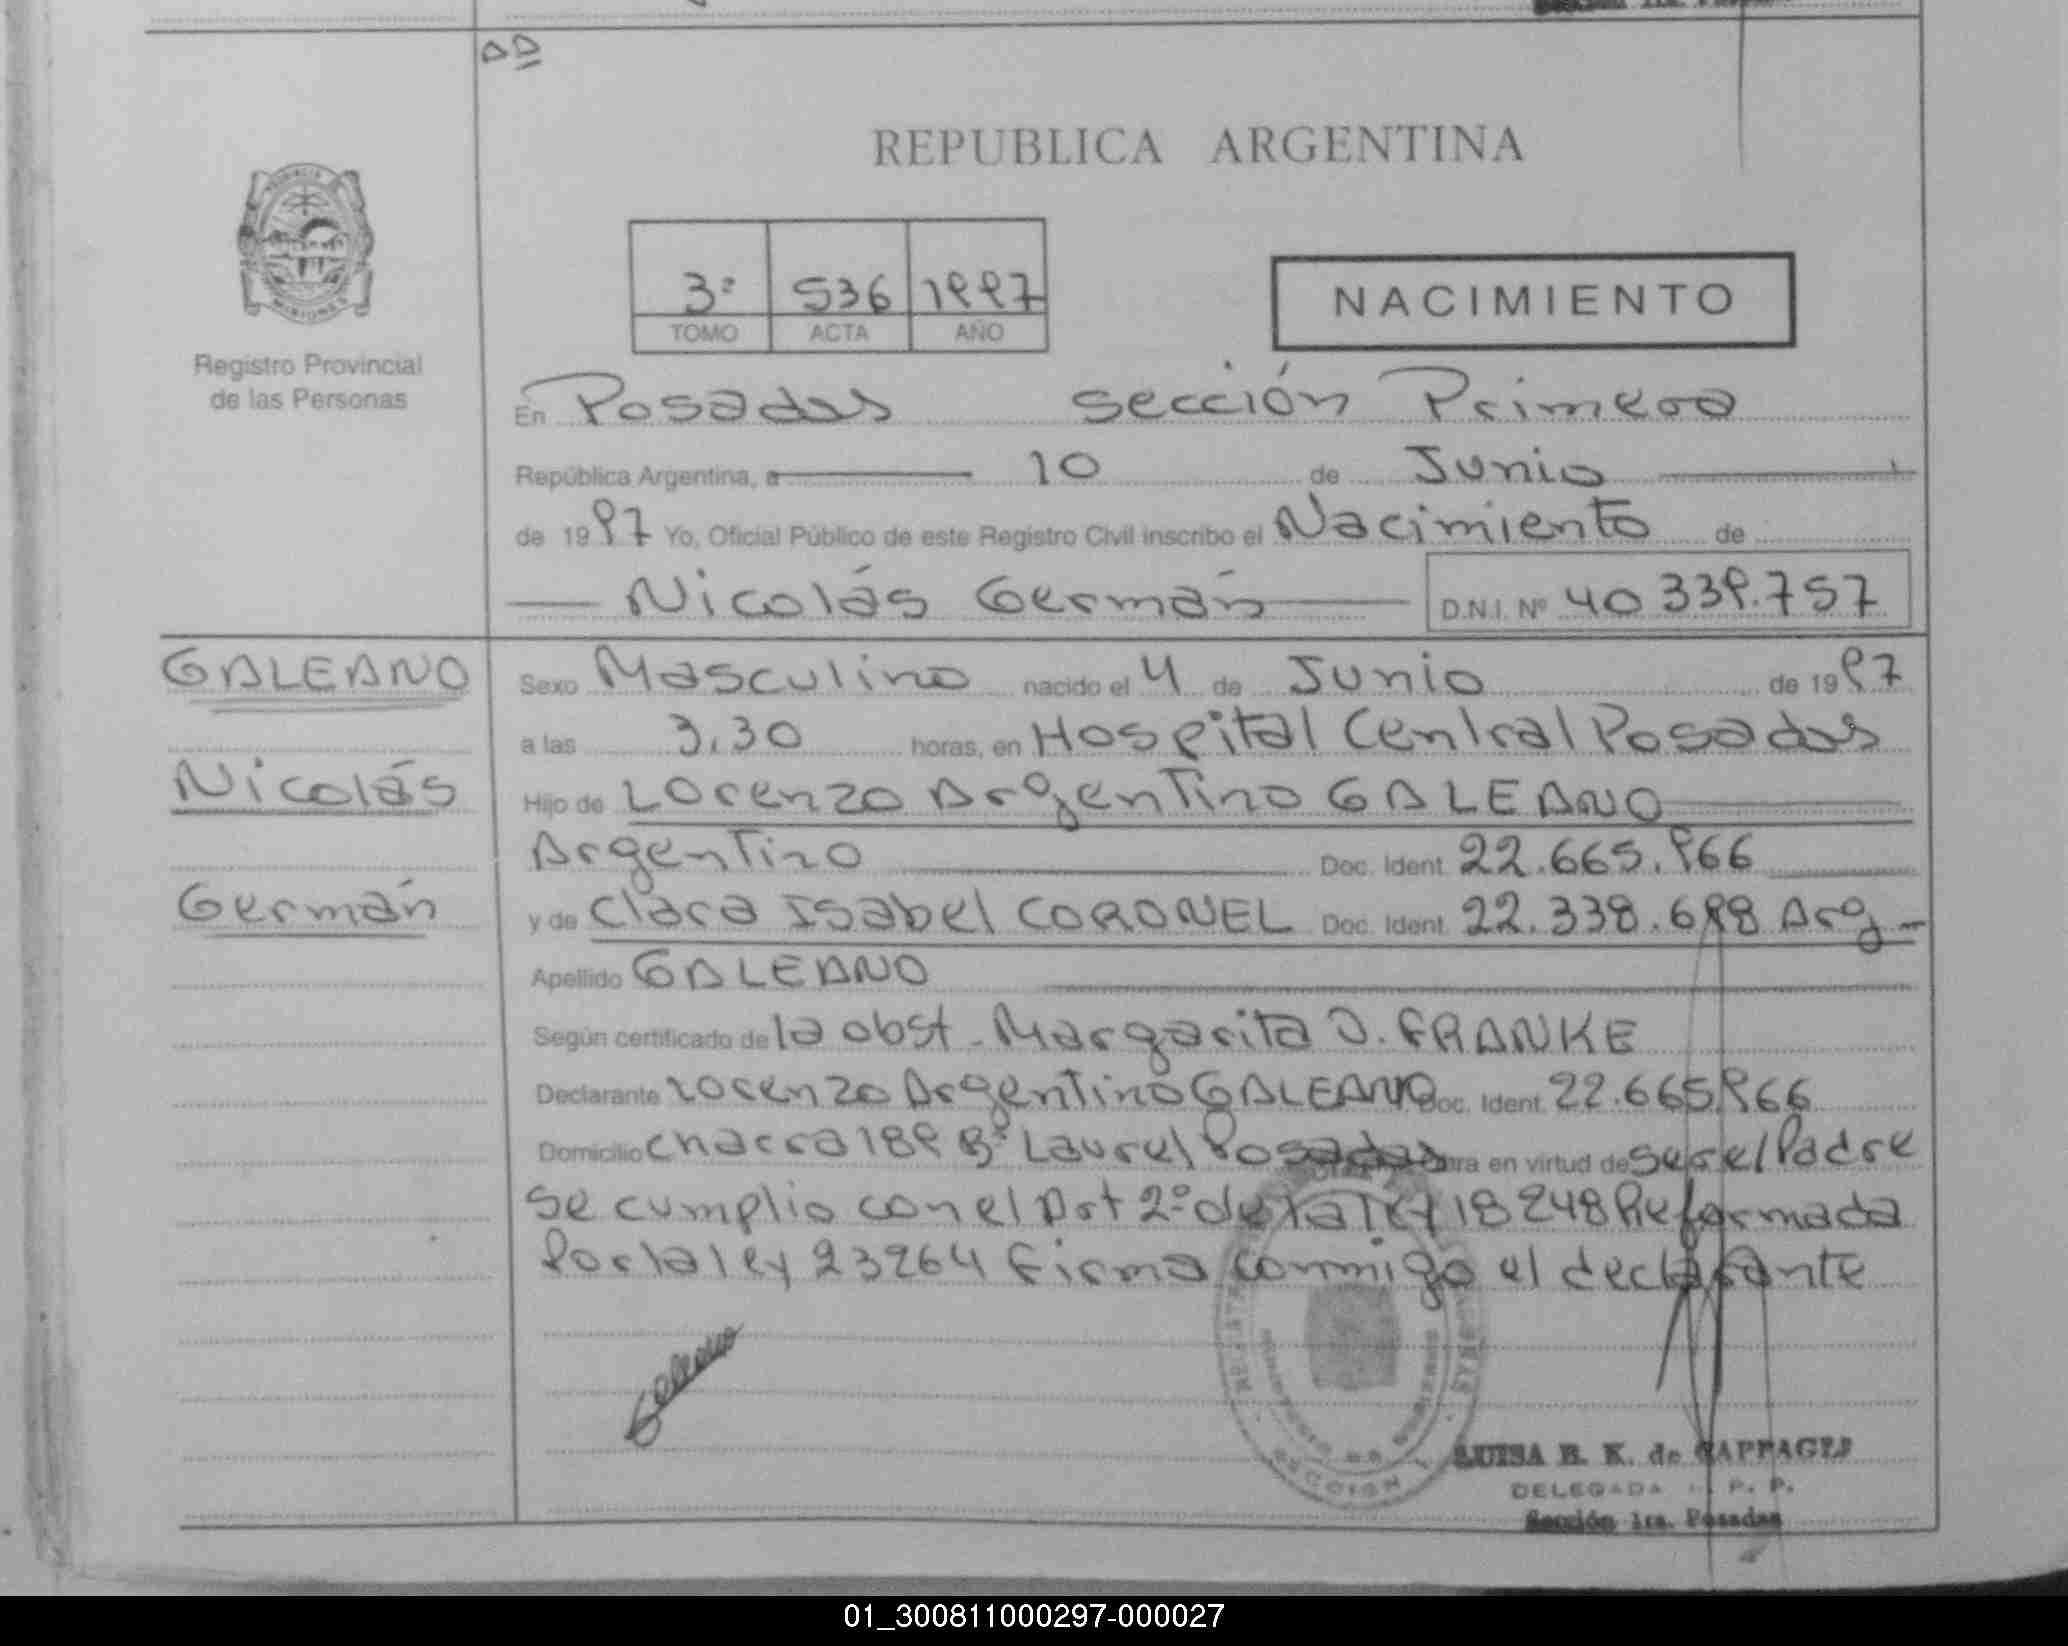 REPUBLICA ARGENTINA
3º 536 1997
TOMO ACTA AÑO
NACIMIENTO
Registro Provincial
de las Personas
En Posadas sección Primera
República Argentina, a 10 de Junio
de 1997 Yo, Oficial Público de este Registro Civil inscribo el Nacimiento de
Nicolás Germán D.N.I. Nº 40 339.757
GALEANO
Nicolás
Germán
Sexo Masculino nacido el 4 de Junio de 1997
a las 3,30 horas, en Hospital Central Posadas
Hijo de Lorenzo Argentino GALEANO
Argentino Doc. Ident. 22.665.966
y de Clara Isabel CORONEL Doc. Ident. 22.338.698 Arg
Apellido GALEANO
Según certificado de la obst. Margarita J. FRANKE
Declarante Lorenzo Argentino GALEANO Doc. Ident. 22.665.966
Domicilio Chacra 189 Bº Laurel Posadas en virtud de ser el Padre
se cumplio con el Art 2º de la Ley 18248 Reformada
Por la ley 23264 firma conmigo el declarante
LUISA B. K. de
DELEGADA P. P.
Sección 1ra. Posadas
01_300811000297-000027